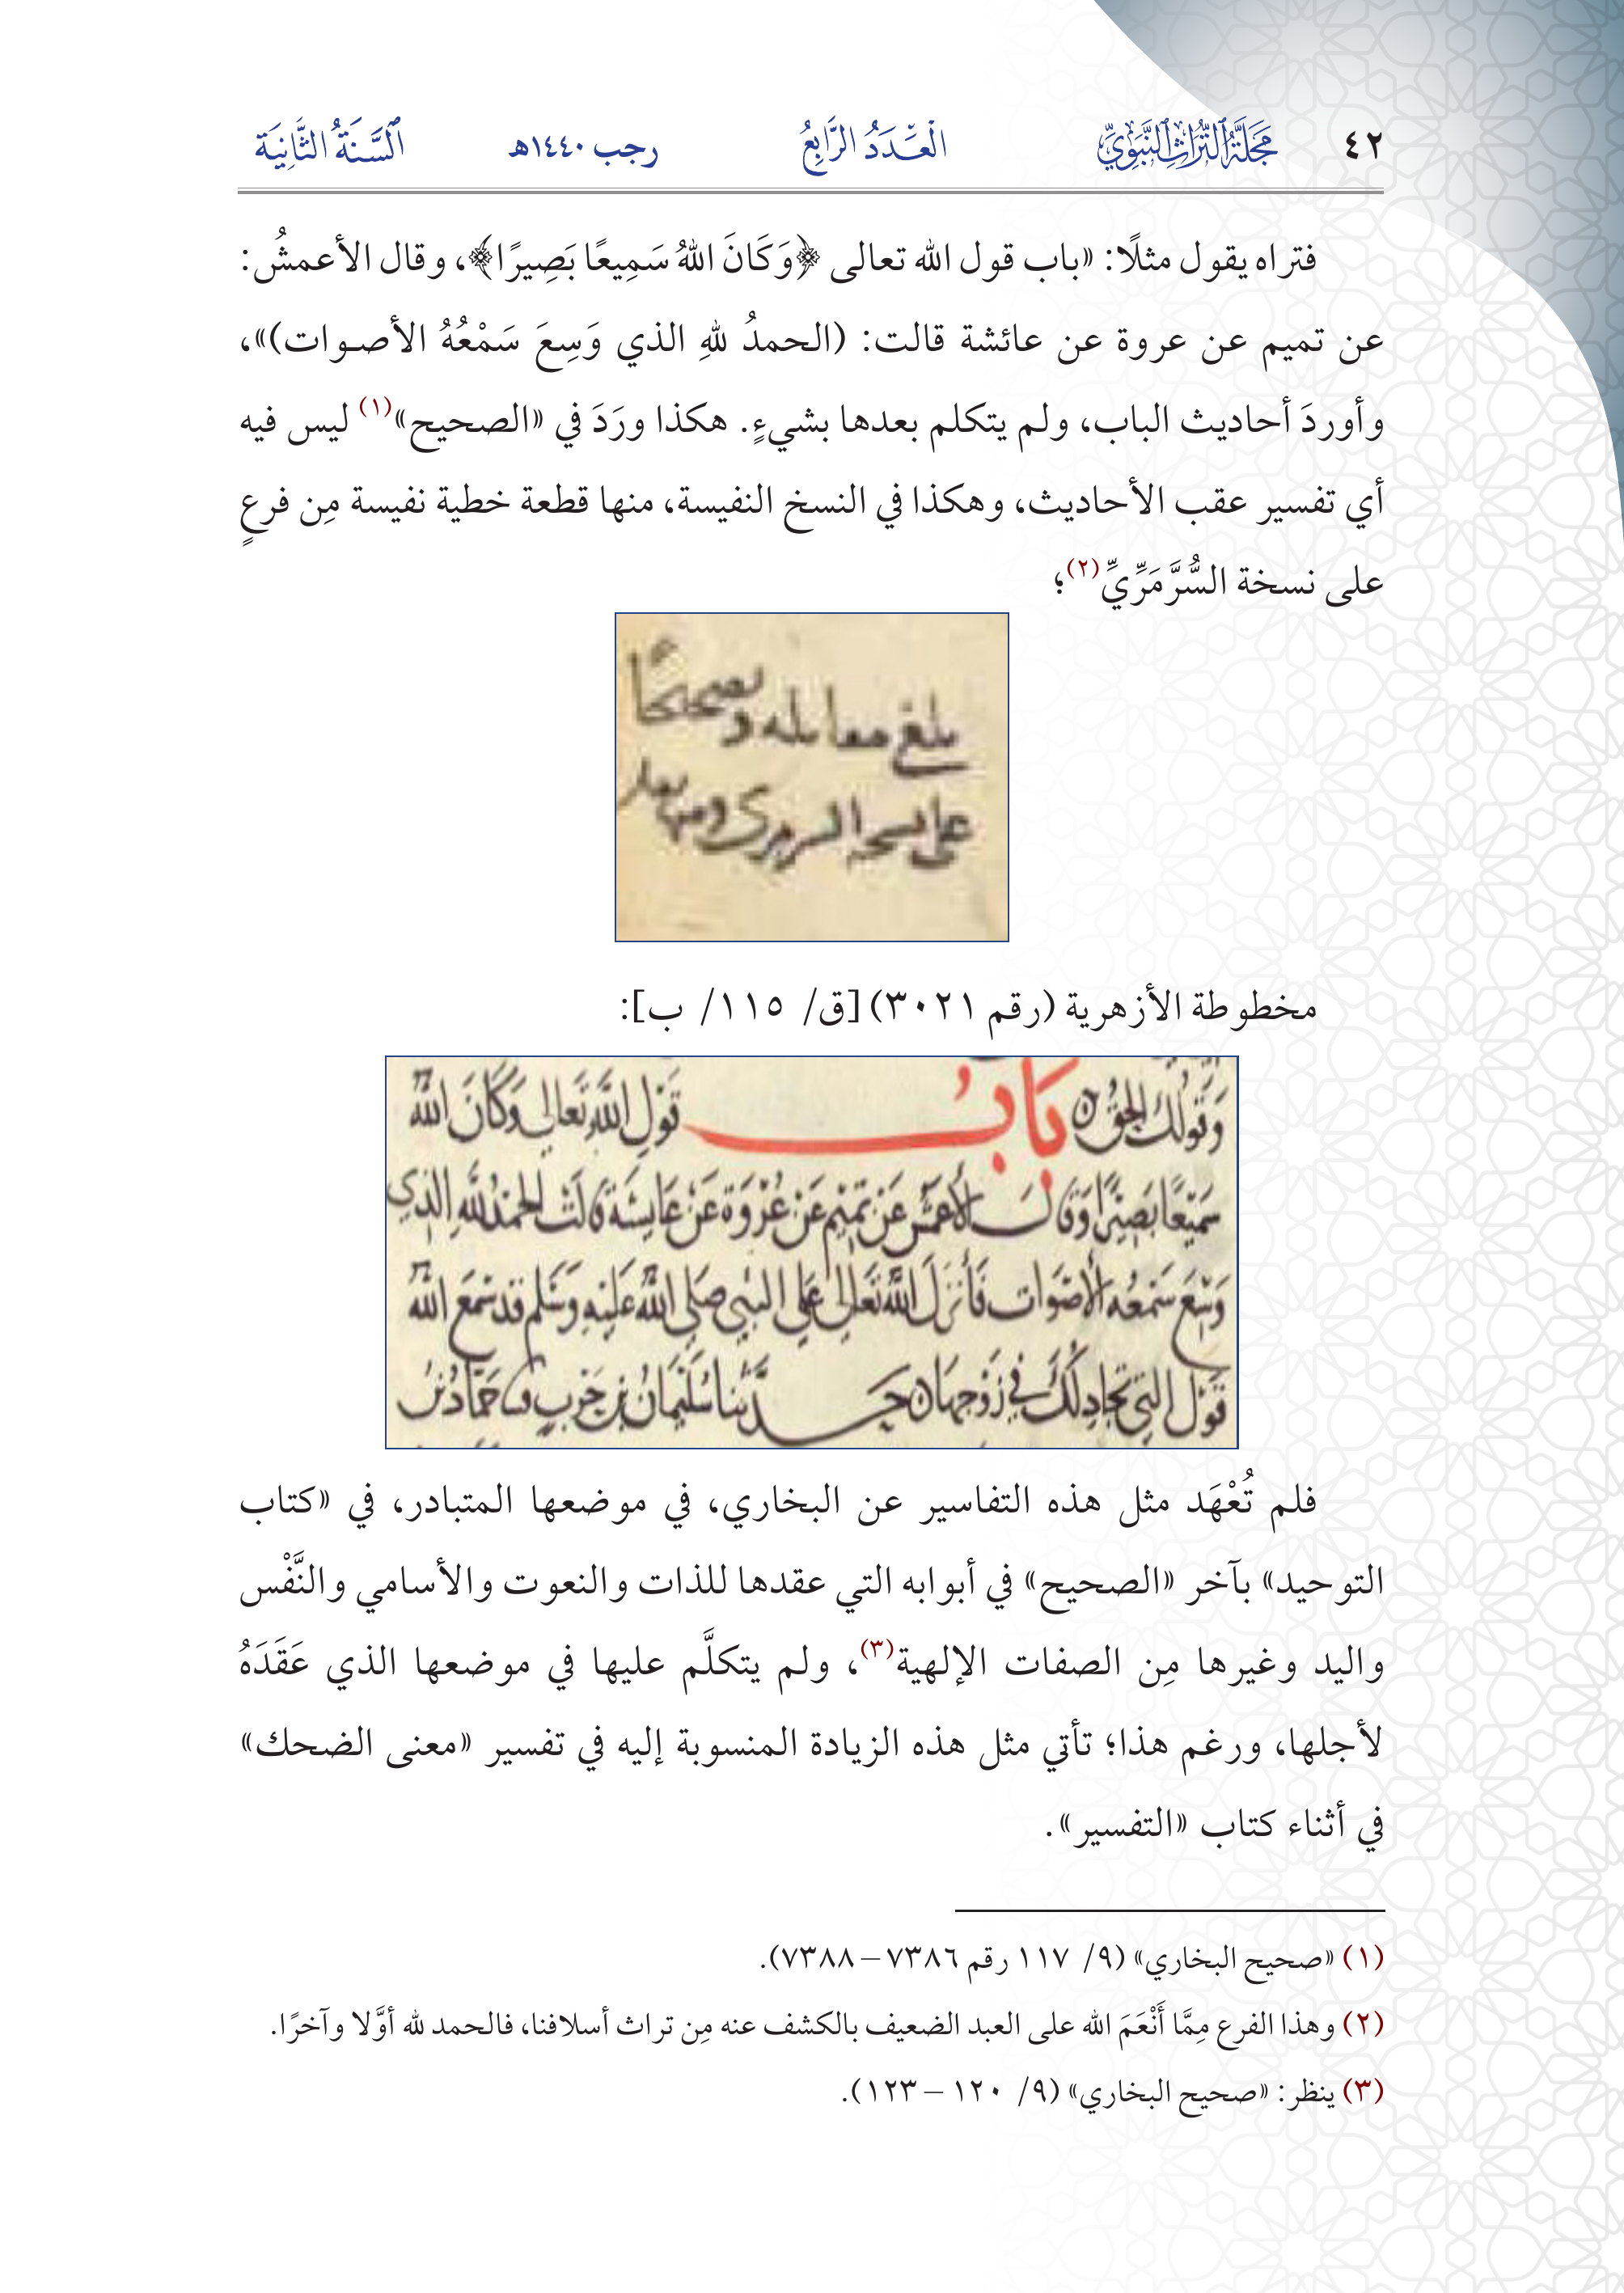 ٤٢ مَجَلَّةُ التُّرَاثِ النَّبَوِيِّ الْعَدَدُ الرَّابِعُ رجب ١٤٤٠هـ السَّنَةُ الثَّانِيَة
فتراه يقول مثلًا: «باب قول الله تعالى ﴿وَكَانَ اللهُ سَمِيعًا بَصِيرًا﴾، وقال الأعمشُ:
عن تميم عن عروة عن عائشة قالت: (الحمدُ للهِ الذي وَسِعَ سَمْعُهُ الأصوات)»،
وأوردَ أحاديث الباب، ولم يتكلم بعدها بشيءٍ. هكذا ورَدَ في «الصحيح»(١) ليس فيه
أي تفسير عقب الأحاديث، وهكذا في النسخ النفيسة، منها قطعة خطية نفيسة مِن فرعٍ
على نسخة السُّرَّمَرِّيِّ(٢)؛
بلغ مقابلة وتصحيحًا
على نسخة السرمري ومن بعد
مخطوطة الأزهرية (رقم ٣٠٢١) [ق/ ١١٥/ ب]:
وَقَولُكَ الحَقُّ بَابُ قَوْلِ اللَّهِ تَعَالى وَكَانَ اللهُ
سَمِيْعًا بَصِيْرًا وَقَالَ الأَعْمَشُ عَنْ تَمِيْمٍ عَنْ عُرْوَةَ عَنْ عَايِشَةَ قَالَتْ الحَمْدُ لِلَّهِ الَّذِي
وَسِعَ سَمْعُه الأَصْوَات فَأَنْزَلَ اللهُ تَعَالى عَلى النَّبِي صَلى اللهُ عَلَيْهِ وَسَلم قَد سَمِعَ اللهُ
قَوْلَ التِي تُجَادِلُكَ فِي زَوْجِهَا حَدَّثَنَا سُلَيْمَانُ بْنُ حَرْبٍ ثنا حَمَّادُ بْنُ
فلم تُعْهَد مثل هذه التفاسير عن البخاري، في موضعها المتبادر، في «كتاب
التوحيد» بآخر «الصحيح» في أبوابه التي عقدها للذات والنعوت والأسامي والنَّفْس
واليد وغيرها مِن الصفات الإلهية(٣)، ولم يتكلَّم عليها في موضعها الذي عَقَدَهُ
لأجلها، ورغم هذا؛ تأتي مثل هذه الزيادة المنسوبة إليه في تفسير «معنى الضحك»
في أثناء كتاب «التفسير».
(١) «صحيح البخاري» (٩/ ١١٧ رقم ٧٣٨٦ – ٧٣٨٨).
(٢) وهذا الفرع مِمَّا أَنْعَمَ الله على العبد الضعيف بالكشف عنه مِن تراث أسلافنا، فالحمد لله أوَّلا وآخرًا.
(٣) ينظر: «صحيح البخاري» (٩/ ١٢٠ – ١٢٣).